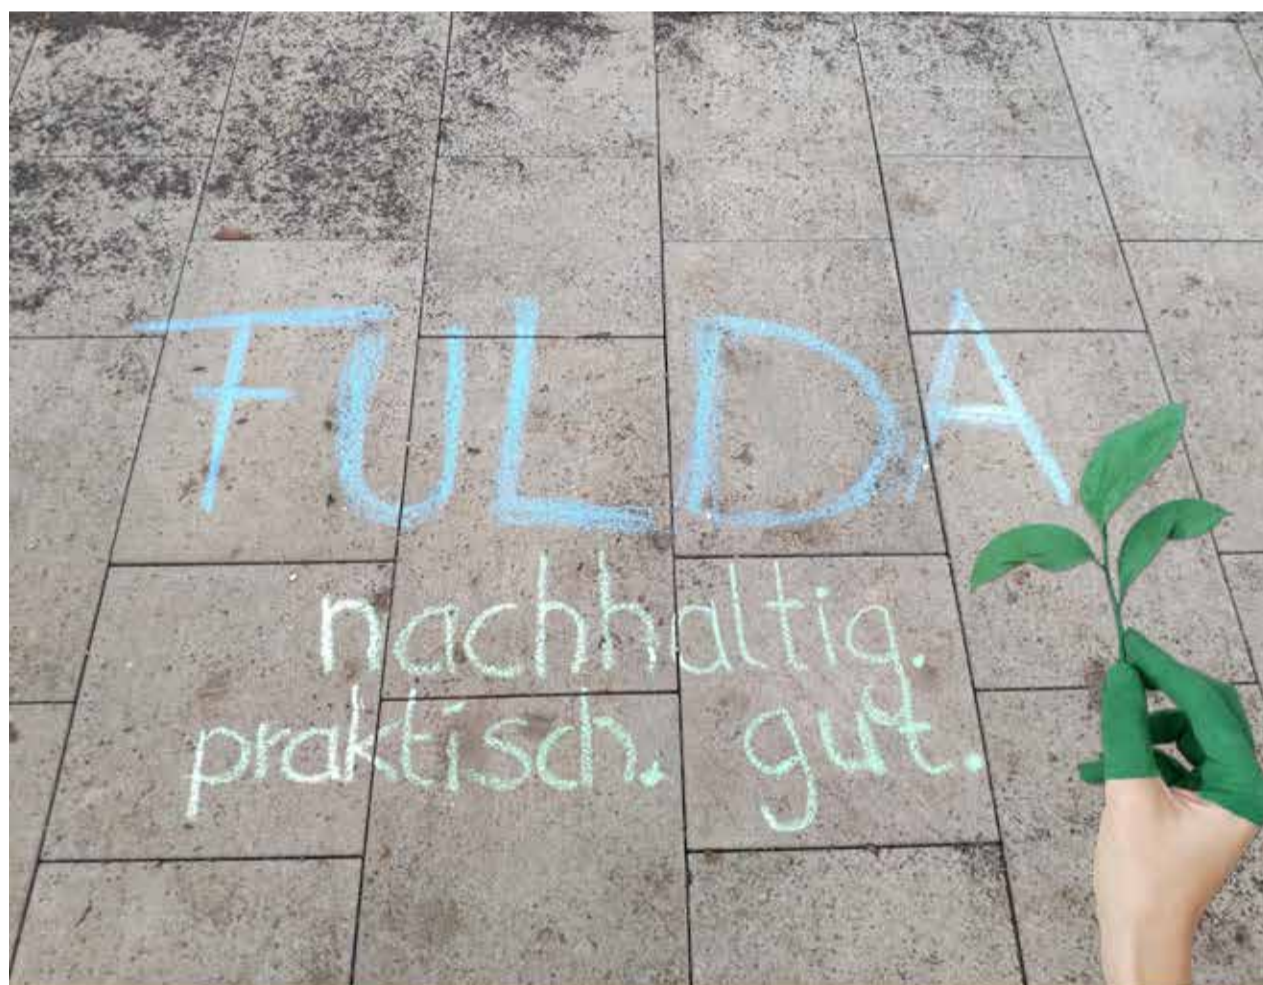 FULDA
nachhaltig.
praktisch. gut.